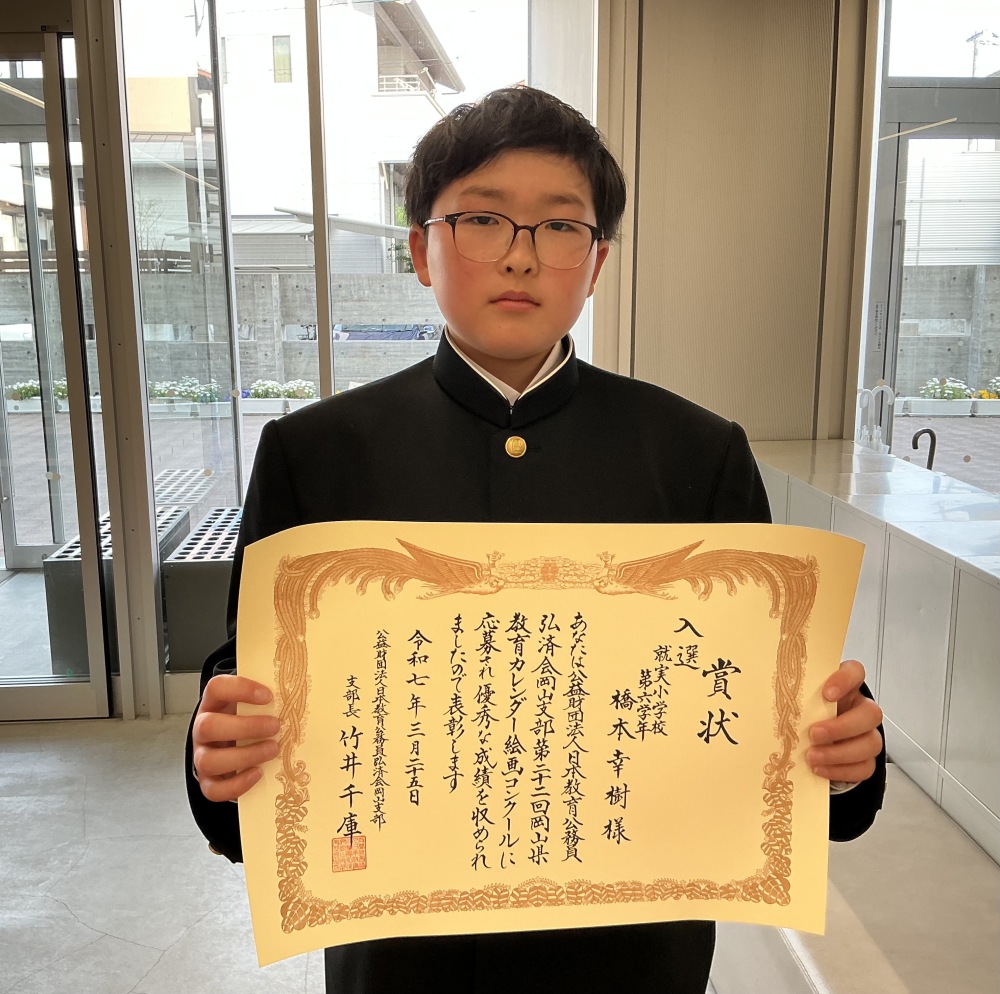 賞状
入選
就実小学校
第六学年
橋本幸樹様
あなたは公益財団法人日本教育公務員
弘済会岡山支部第二十二回岡山県
教育カレンダー絵画コンクールに
応募され優秀な成績を収められ
ましたので表彰します
令和七年三月二十五日
公益財団法人日本教育公務員弘済会岡山支部
支部長 竹井千庫